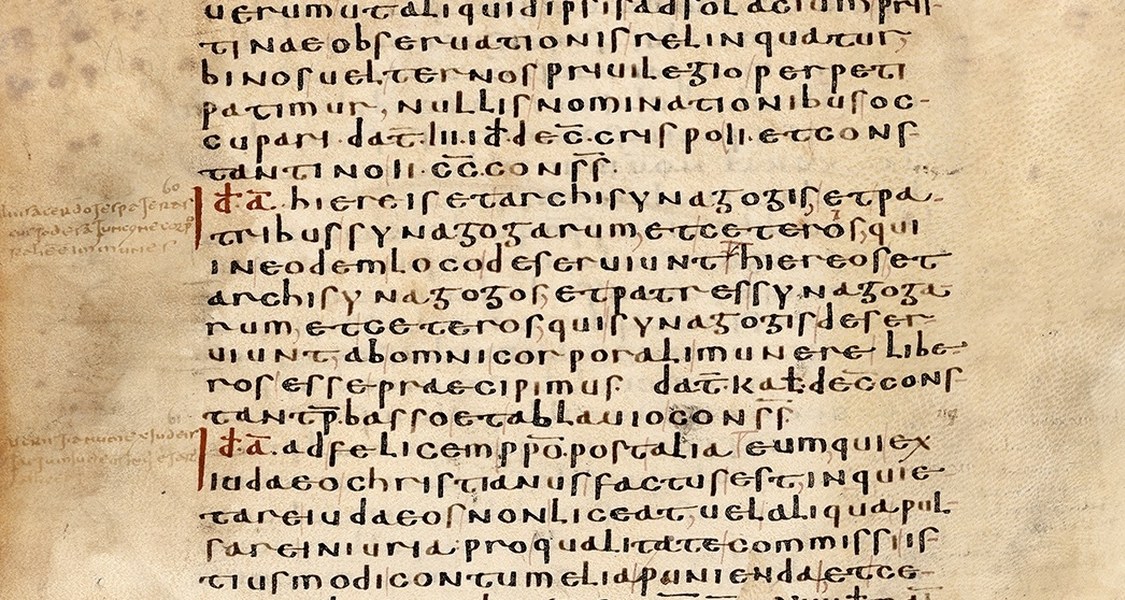 uerum ut aliquid ipsis ad solacium pris-
tinae obseruationis relinquatur,
binos uel ternos priuilegio perpeti
patimur, nullis nominationibus oc-
cupari. dat̄. iii. id̄. dec̄. crispo ii. et cons-
tantino ii. c̄c̄. cons̄s̄.
īd. ā. hiereis et archisynagogis, et pa-
tribus synagogarum, et ceteros, qui
in eodem loco deseruiunt hiereos et
archisynagogos, et patres synagoga
rum, et ceteros, qui synagogis deser-
uiunt, ab omni corporali munere libe-
ros esse praecipimus. dat̄. kal̄. dec̄ cons
tant̄p̄. basso et ablauio cons̄s̄.
īd. ā. ad felicem pp̄o. post alia eum qui ex
iudaeo christianus factus est, inquie-
tare iudaeos non liceat, uel aliqua pul-
sare iniuria. pro qualitate commissi is
tiusmodi contumelia punienda et ce-